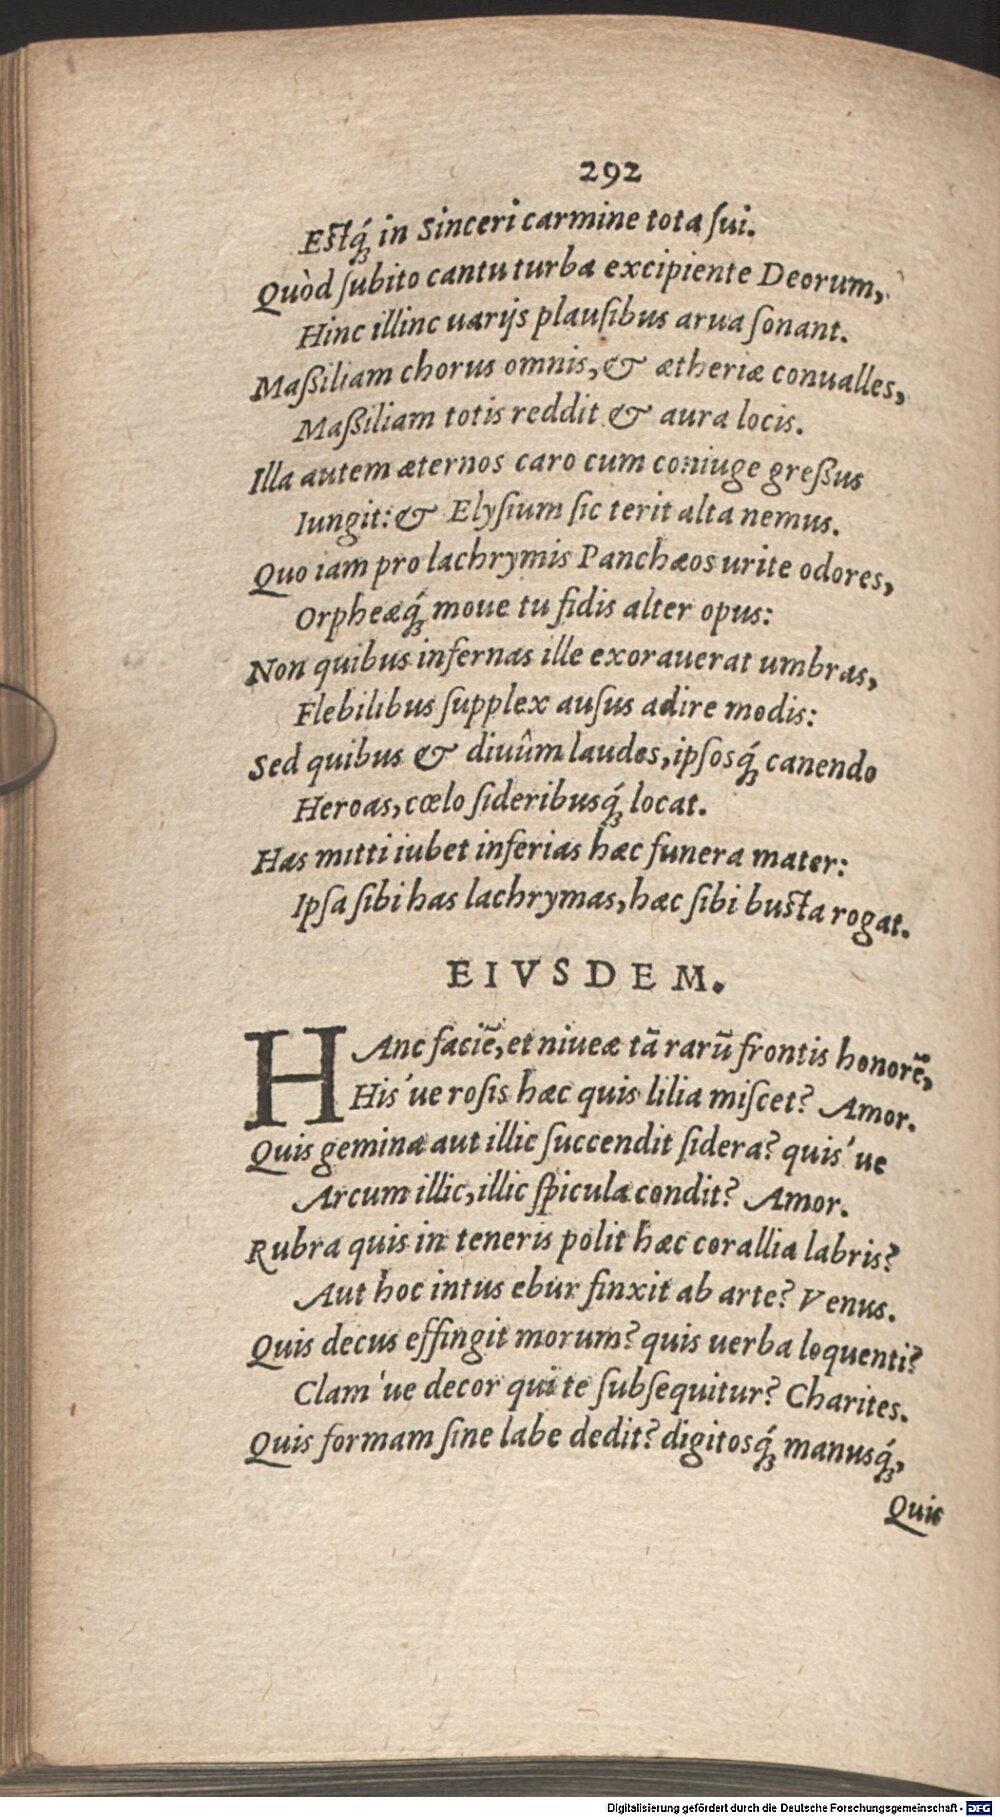 292
Estq́; in Sinceri carmine tota ſui.
Quòd ſubito cantu turba excipiente Deorum,
Hinc illinc uarijs plauſibus arua ſonant.
Maßiliam chorus omnis, & ætheriæ conualles,
Maßiliam totis reddit & aura locis.
Illa autem æternos caro cum coniuge greßus
Iungit: & Elyſium ſic terit alta nemus.
Quo iam pro lachrymis Panchæos urite odores,
Orpheæq́; moue tu fidis alter opus:
Non quibus infernas ille exorauerat umbras,
Flebilibus ſupplex auſus adire modis:
Sed quibus & diuûm laudes, ipſosq́; canendo
Heroas, cœlo ſideribusq́; locat.
Has mitti iubet inferias hæc funera mater:
Ipſa ſibi has lachrymas, hæc ſibi busta rogat.
EIVSDEM.
HAnc faciē, et niueæ tā rarū frontis honorē,
His´ue roſis hæc quis lilia miſcet? Amor.
Quis geminæ aut illic ſuccendit ſidera? quis´ue
Arcum illic, illic ſpicula condit? Amor.
Rubra quis in teneris polit hæc corallia labris?
Aut hoc intus ebur finxit ab arte? Venus.
Quis decus effingit morum? quis uerba loquenti?
Clam´ue decor qui te ſubſequitur? Charites.
Quis formam ſine labe dedit? digitosq́; manusq́;,
Quis
Digitalisierung gefördert durch die Deutsche Forschungsgemeinschaft - DFG